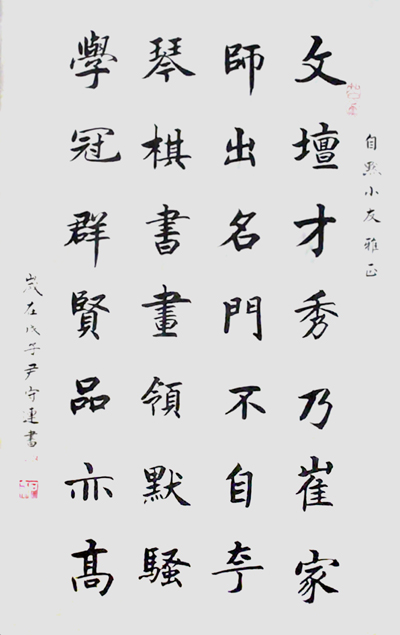 自默小友雅正
文壇才秀乃崔家
師出名門不自夸
琴棋書畫領默騷
學冠群賢品亦髙
歲在戊子尹守書